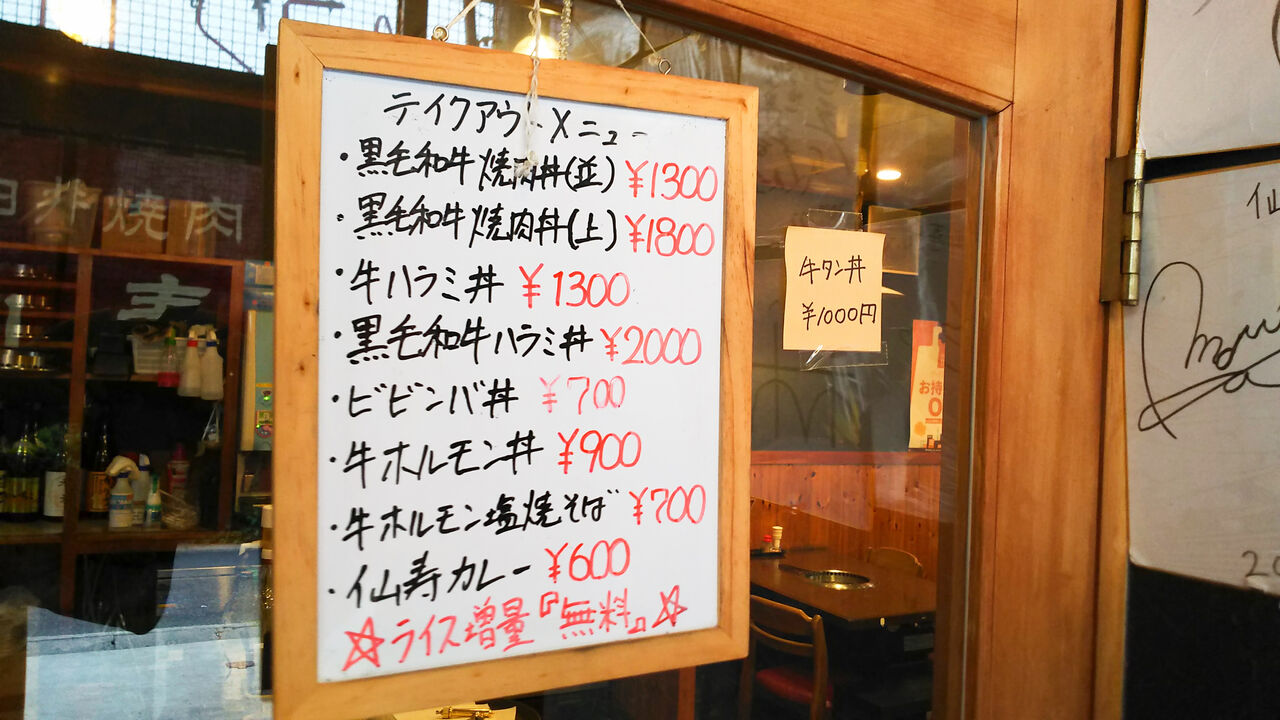 テイクアウトメニュー
・黒毛和牛焼肉丼(並) ¥1300
・黒毛和牛焼肉丼(上) ¥1800
・牛ハラミ丼 ¥1300
・黒毛和牛ハラミ丼 ¥2000
・ビビンバ丼 ¥700
・牛ホルモン丼 ¥900
・牛ホルモン塩焼そば ¥700
・仙寿カレー ¥600
☆ライス増量『無料』☆
牛タン丼
¥1000円
焼肉
お持
仙
20